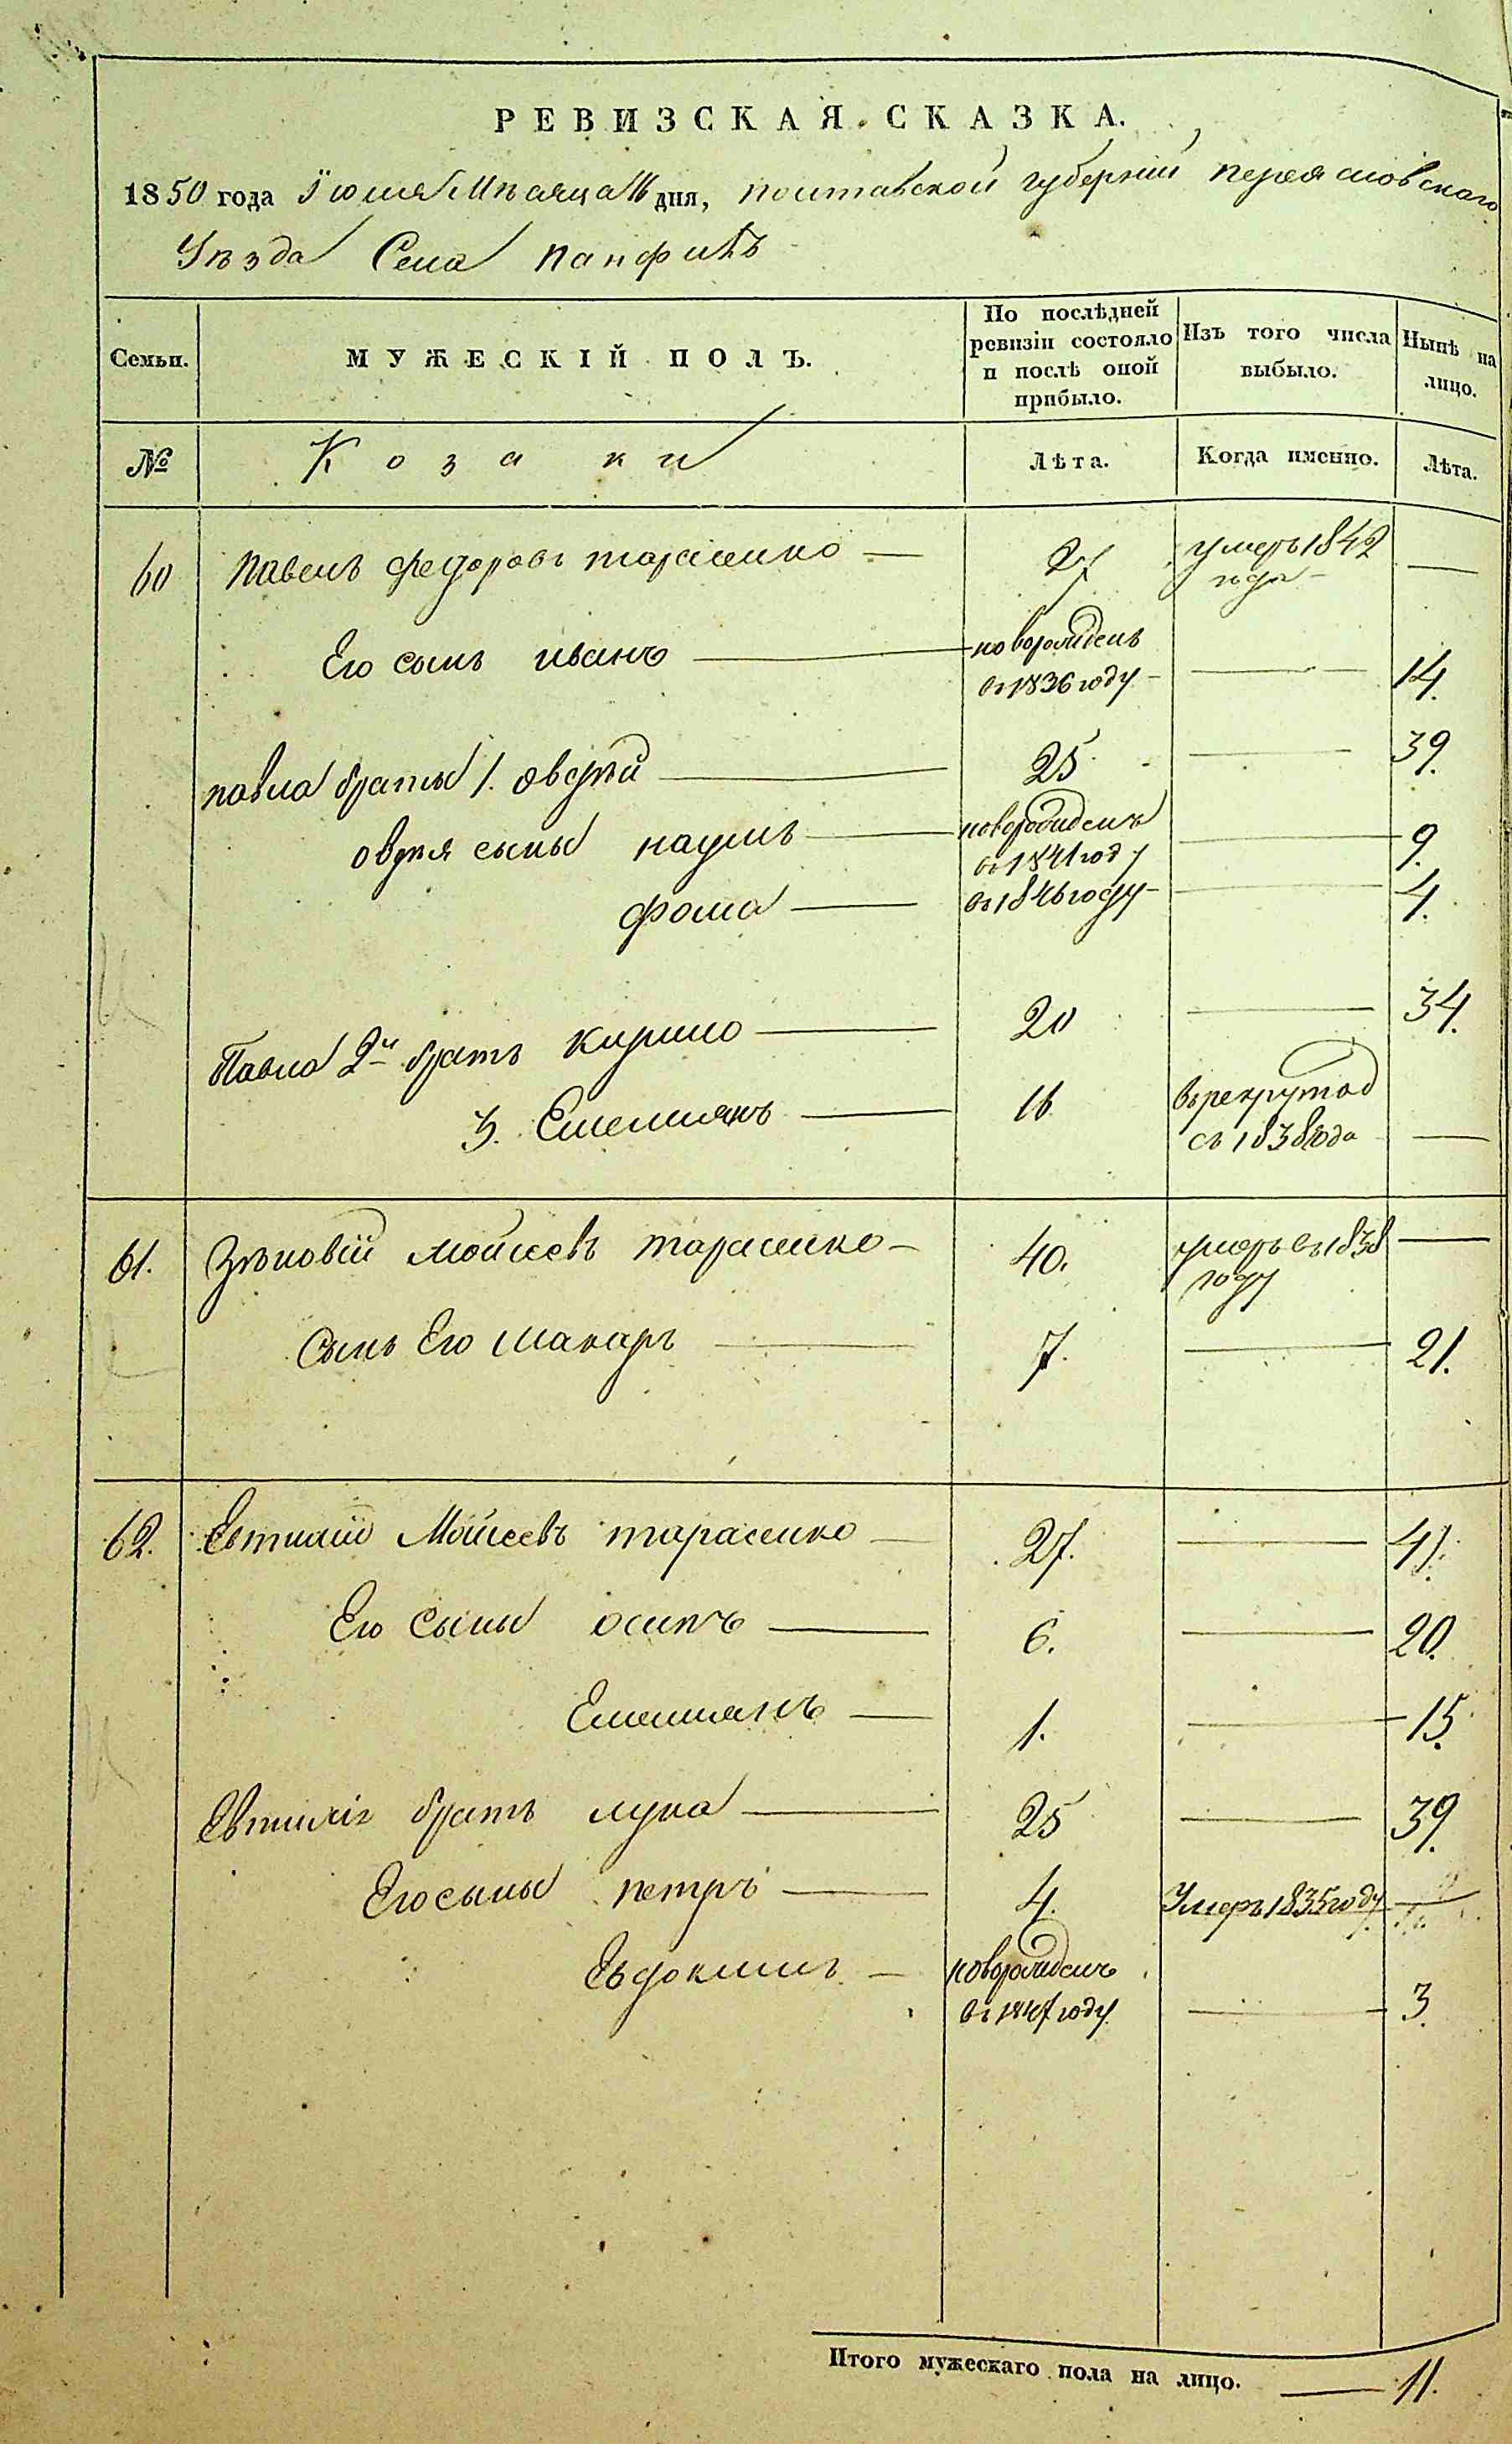 РЕВИЗСКАЯ СКАЗКА.
1850 года Іюля Мѣсяца 16 дня, полтавской губерніи переясловскаго
Уѣзда Села панфилъ
Семьи.
МУЖЕСКІЙ ПОЛЪ.
По послѣдней ревизіи состояло и послѣ оной прибыло.
Изъ того числа выбыло.
Нынѣ на лицо.
№
Козаки
Лѣта.
Когда именно.
Лѣта.
60 павелъ федоровъ тарасенко — 27 умеръ 1842 года — —
Его сынъ иванъ — новорожденъ въ 1836 году — — 14.
павла браты 1. оверкій — 25 — 39.
оверкія сыны наумъ — новорожденъ въ 1841 году — 9.
фома — въ 1846 году — — 4.
Павла 2й братъ кирило — 20 — 34.
3. Емелиянъ — 16 въ рекрутах съ 1838 года —
61. Зѣновій мойсеевъ тарасенко — 40. умеръ въ 1838 году —
Сынъ Его макаръ — 7. — 21.
62. Евтихій Мойсеевъ тарасенко — 27. — 41.
Его Сыны осипъ — 6. — 20.
Емелиянъ — 1. — 15.
Евтихія братъ лука — 25 — 39.
Его сыны петръ — 4. Умеръ 1835 году —
Евдокимъ — новорожденъ въ 1847 году — 3.
Итого мужескаго пола на лицо. — 11.